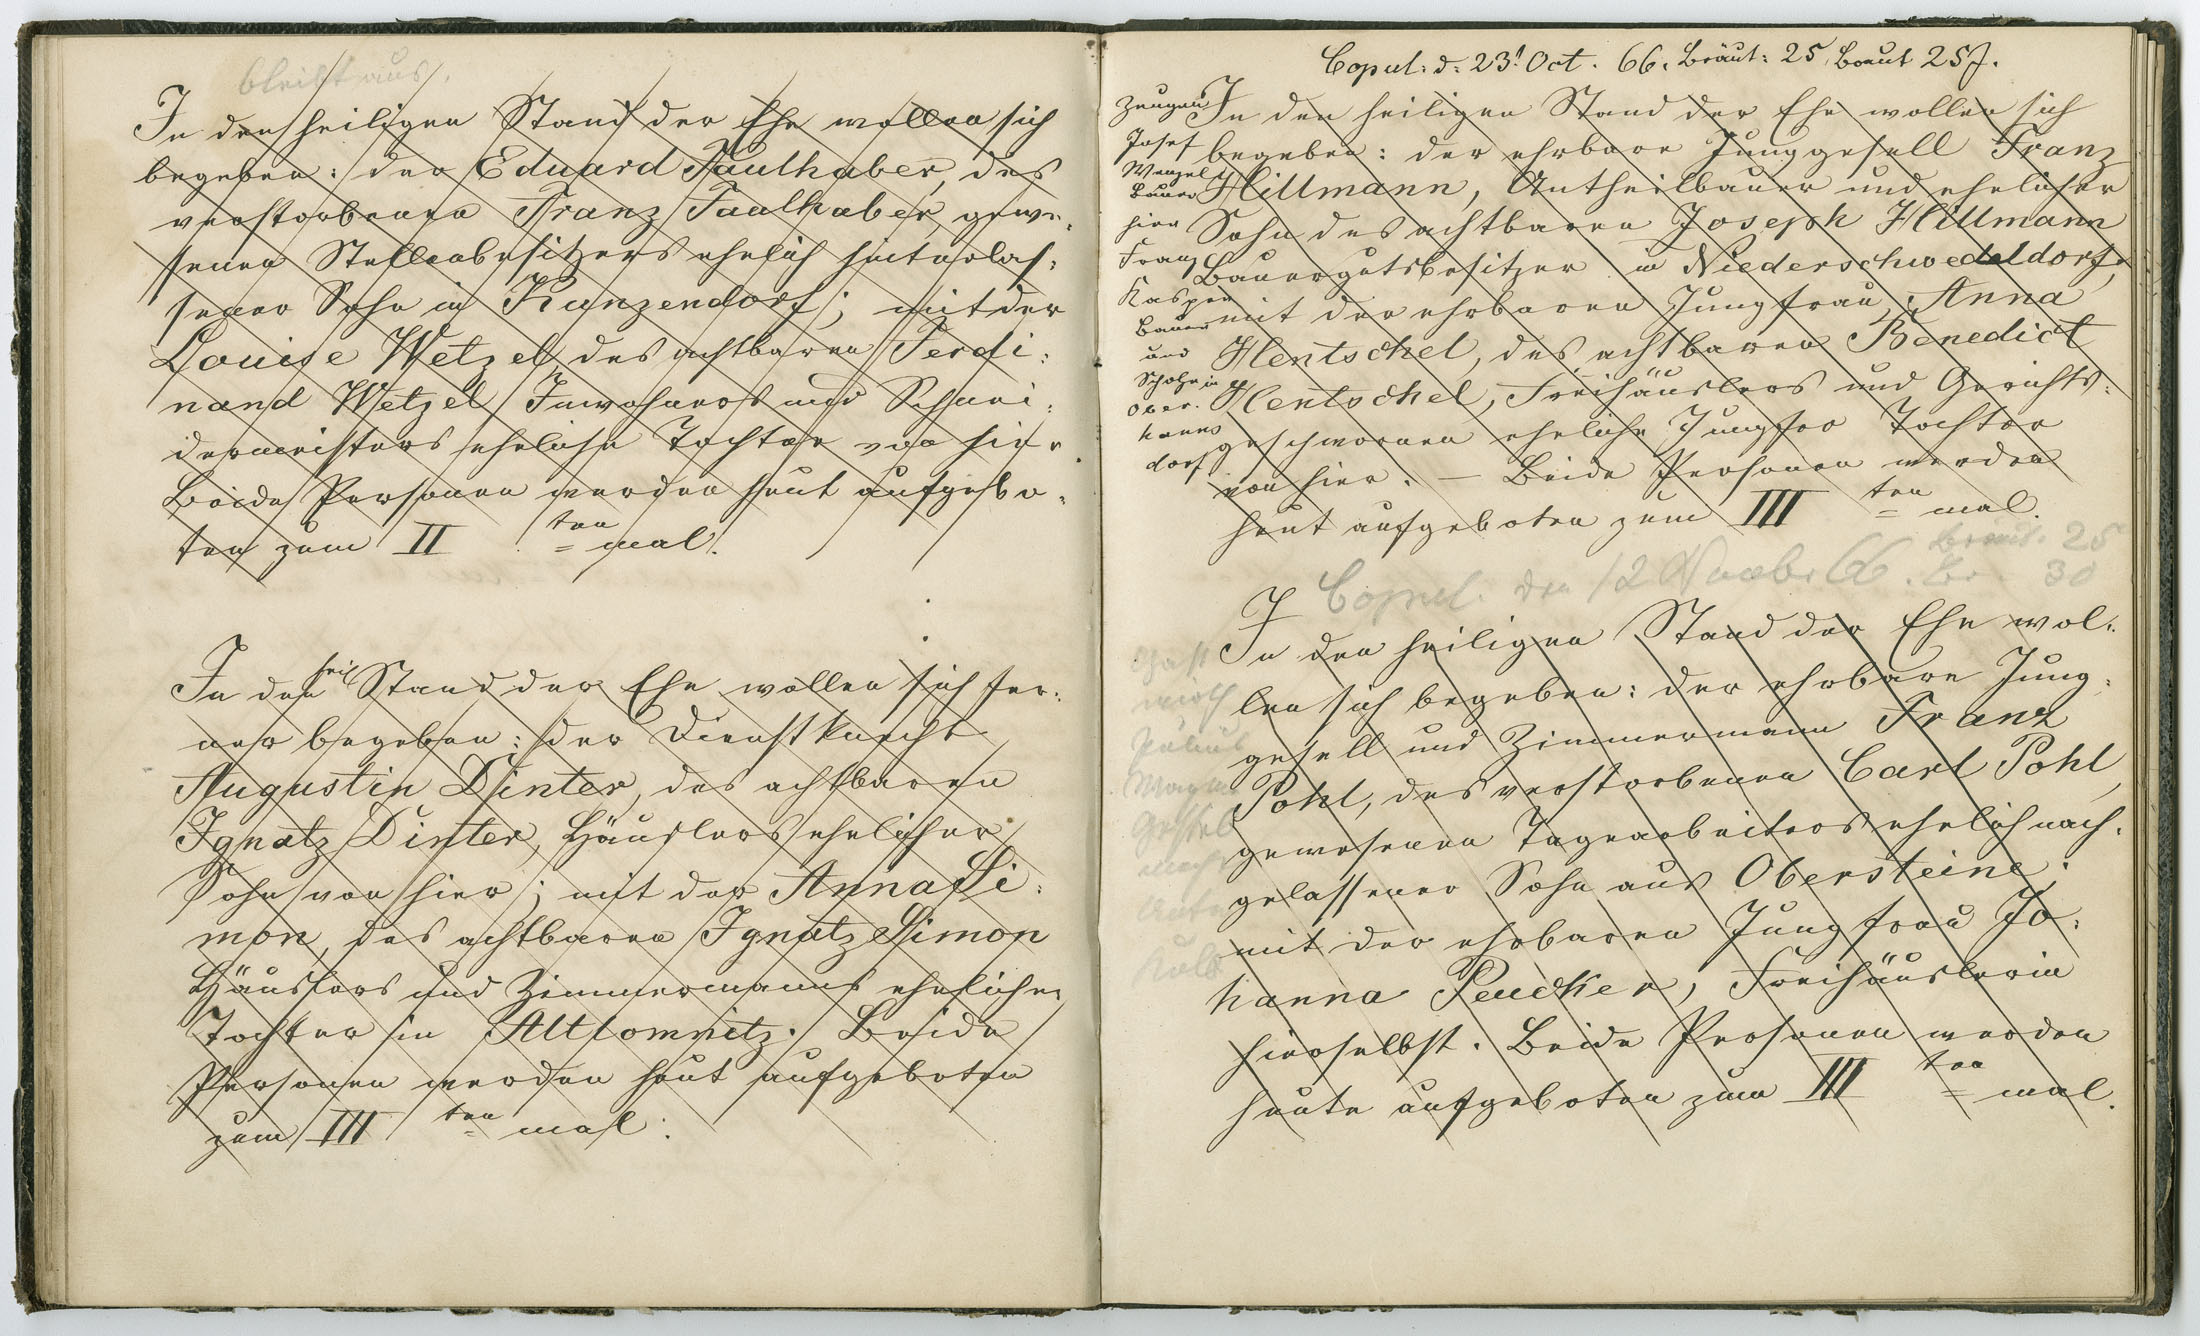 bleibt aus.
In den heiligen Stand der Ehe wollen sich
begeben: der Eduard Faulhaber, des
verstorbenen Franz Faulhaber, gewe-
senen Stellenbesitzers ehelich hinterlas-
sener Sohn in Kunzendorf; mit der
Louise Wetzel, des achtbaren Ferdi-
nand Wetzel Inwohners und Schnei-
dermeisters eheliche Tochter von hier.
Beide Personen werden heut aufgebo-
ten zum II ten mal.
In den heil Stand der Ehe wollen sich fer-
ner begeben: der Dienstknecht
Augustin Dinter, des achtbaren
Ignatz Dinter, Häuslers ehelicher
Sohn von hier; mit der Anna Si-
mon, des achtbaren Ignatz Simon
Häuslers und Zimmermanns eheliche
Tochter in Altlomnitz. Beide
Personen werden heut aufgeboten
zum III ten mal.
Copul: d: 23t Oct. 66. Bräut: 25 Braut 25 J.
Zeugen
Josef
Wenzel
Bauer
hier
Franz
Kasper
Bauer
und
Scholze in
Ober-
hanns
dorf
In den heiligen Stand der Ehe wollen sich
begeben: der ehrbare Junggesell Franz
Hillmann, Antheilbauer und ehelicher
Sohn des achtbaren Joseph Hillmann
Bauergutsbesitzer in Niederschwedeldorf,
mit der ehrbaren Jungfrau Anna
Hentschel, des achtbaren Benedict
Hentschel, Freihäuslers und Gerichts-
geschwornen eheliche Jungfer Tochter
von hier. — Beide Personen werden
heut aufgeboten zum III ten mal.
Copul. den 12 Novebr 66. Bräut. 25
Br. 30
In den heiligen Stand der Ehe wol-
len sich begeben: der ehrbare Jung-
gesell und Zimmermann Franz
Pohl, des verstorbenen Carl Pohl,
gewesenen Tagearbeiters ehelich nach-
gelassener Sohn aus Obersteine;
mit der ehrbaren Jungfrau Jo-
hanna Peucker, Freihäuslerin
hierselbst. Beide Personen werden
heute aufgeboten zum III ten mal.